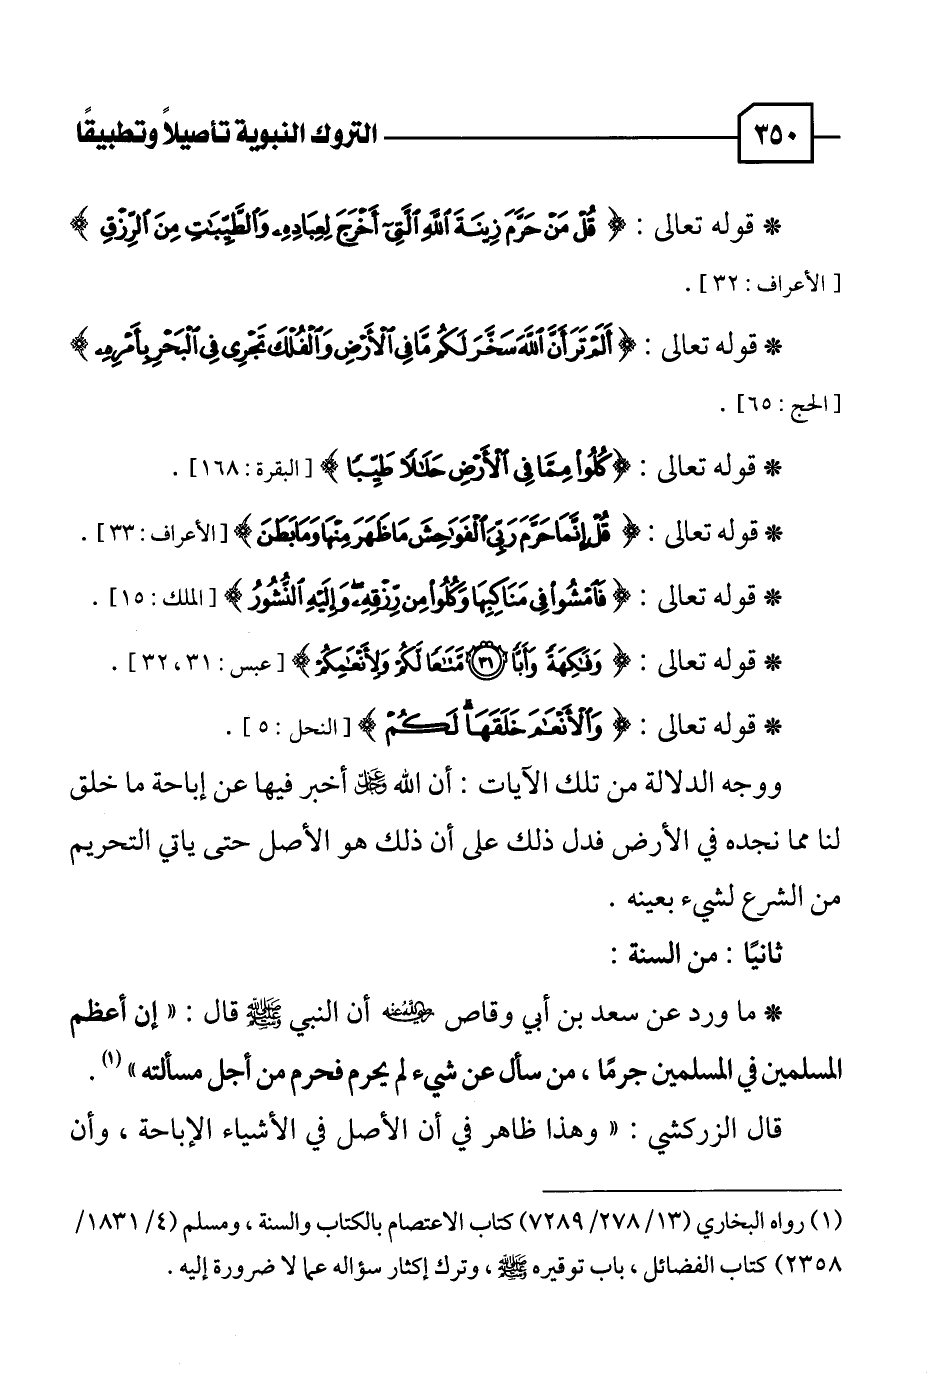 ٣٥٠ التروك النبوية تأصيلاً وتطبيقًا
* قوله تعالى : ﴿ قُلْ مَنْ حَرَّمَ زِينَةَ ٱللَّهِ ٱلَّتِىٓ أَخْرَجَ لِعِبَادِهِۦ وَٱلطَّيِّبَٰتِ مِنَ ٱلرِّزْقِ ﴾
[ الأعراف : ٣٢ ] .
* قوله تعالى : ﴿ أَلَمْ تَرَ أَنَّ ٱللَّهَ سَخَّرَ لَكُم مَّا فِى ٱلْأَرْضِ وَٱلْفُلْكَ تَجْرِى فِى ٱلْبَحْرِ بِأَمْرِهِۦ ﴾
[ الحج : ٦٥ ] .
* قوله تعالى : ﴿ كُلُوا۟ مِمَّا فِى ٱلْأَرْضِ حَلَٰلًا طَيِّبًا ﴾ [ البقرة : ١٦٨ ] .
* قوله تعالى : ﴿ قُلْ إِنَّمَا حَرَّمَ رَبِّىَ ٱلْفَوَٰحِشَ مَا ظَهَرَ مِنْهَا وَمَا بَطَنَ ﴾ [ الأعراف : ٣٣ ] .
* قوله تعالى : ﴿ فَٱمْشُوا۟ فِى مَنَاكِبِهَا وَكُلُوا۟ مِن رِّزْقِهِۦ ۖ وَإِلَيْهِ ٱلنُّشُورُ ﴾ [ الملك : ١٥ ] .
* قوله تعالى : ﴿ وَفَٰكِهَةً وَأَبًّا ٣١ مَّتَٰعًا لَّكُمْ وَلِأَنْعَٰمِكُمْ ﴾ [ عبس : ٣١ ، ٣٢ ] .
* قوله تعالى : ﴿ وَٱلْأَنْعَٰمَ خَلَقَهَا ۗ لَكُمْ ﴾ [ النحل : ٥ ] .
ووجه الدلالة من تلك الآيات : أن الله ﷿ أخبر فيها عن إباحة ما خلق
لنا مما نجده في الأرض فدل ذلك على أن ذلك هو الأصل حتى ياتي التحريم
من الشرع لشيء بعينه .
ثانيًا : من السنة :
* ما ورد عن سعد بن أبي وقاص رضي الله عنه أن النبي ﷺ قال : « إن أعظم
المسلمين في المسلمين جرمًا ، من سأل عن شيء لم يحرم فحرم من أجل مسألته » (١) .
قال الزركشي : « وهذا ظاهر في أن الأصل في الأشياء الإباحة ، وأن
(١) رواه البخاري (١٣/ ٢٧٨/ ٧٢٨٩) كتاب الاعتصام بالكتاب والسنة ، ومسلم (٤/ ١٨٣١/
٢٣٥٨) كتاب الفضائل ، باب توقيره ﷺ ، وترك إكثار سؤاله عما لا ضرورة إليه .